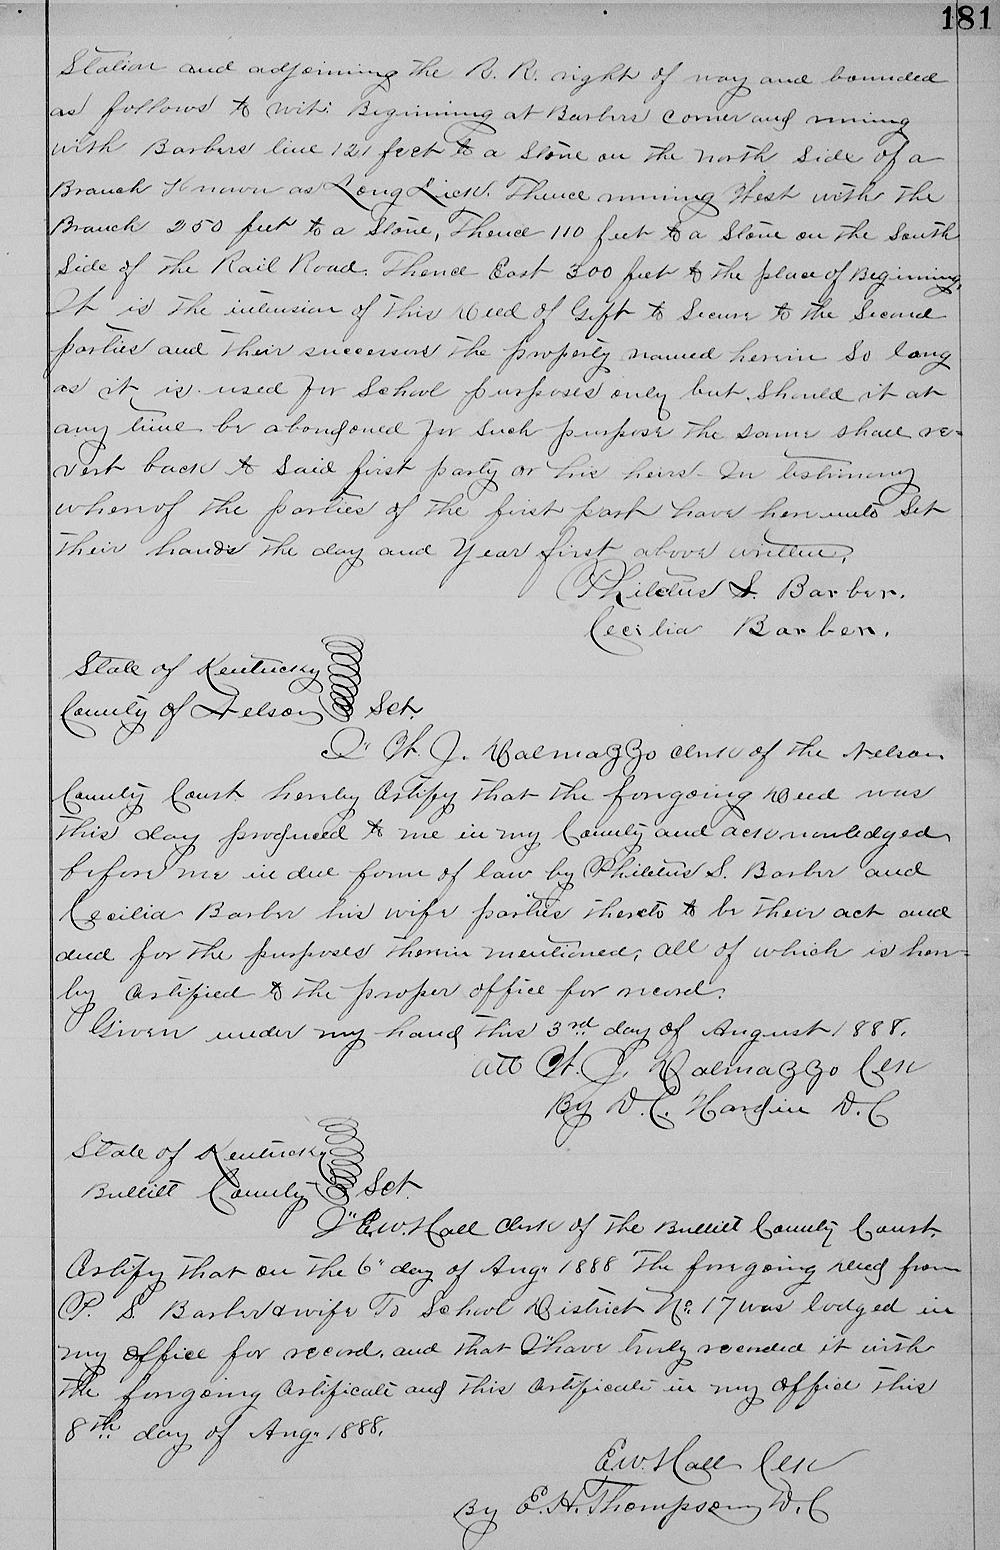 181
Station and adjoining the R. R. right of way and bounded
as follows to wit: Beginning at Barbers corner and runing
with Barbers line 121 feet to a Stone on the north Side of a
Branch Known as Long Lick. Thence runing West with the
Branch 250 feet to a Stone, Thence 110 feet to a Stone on the South
Side of the Rail Road. Thence East 300 feet to the place of Begining,
It is the intension of this Deed of Gift to Secure to the Second
parties and their successors the property named herein So long
as it is used for School purposes only but Should it at
any time be abandoned for Such purpose the same shall re-
vert back to Said first party or his heirs - In testimony
whereof the parties of the first part have hereunto Set
their hands the day and Year first above written.
Philetus S. Barber.
Cecilia Barber.
State of Kentucky
County of Nelson Sct.
I, J. Dalmazzo clerk of the Nelson
County Court hereby Certify that the foregoing Deed was
this day produced to me in my County and acknowledged
before me in due form of law by Philetus S. Barber and
Cecilia Barber his wife parties thereto to be their act and
deed for the purposes therein mentioned, all of which is here-
by Certified to the proper office for record.
Given under my hand this 3rd day of August 1888.
Att J. Dalmazzo Clk
By D. C. Hardin D. C
State of Kentucky
Bullitt County Sct.
I, E.W. Hall Clerk of the Bullitt County Court
Certify that on the 6" day of Aug. 1888 The foregoing deed from
P. S. Barber & wife To School District No. 17 was lodged in
my office for record. and that I have truly recorded it with
the foregoing Certificate and this Certificate in my office this
8th day of Aug. 1888.
E.W. Hall Clk
By E. H. Thompson D. C